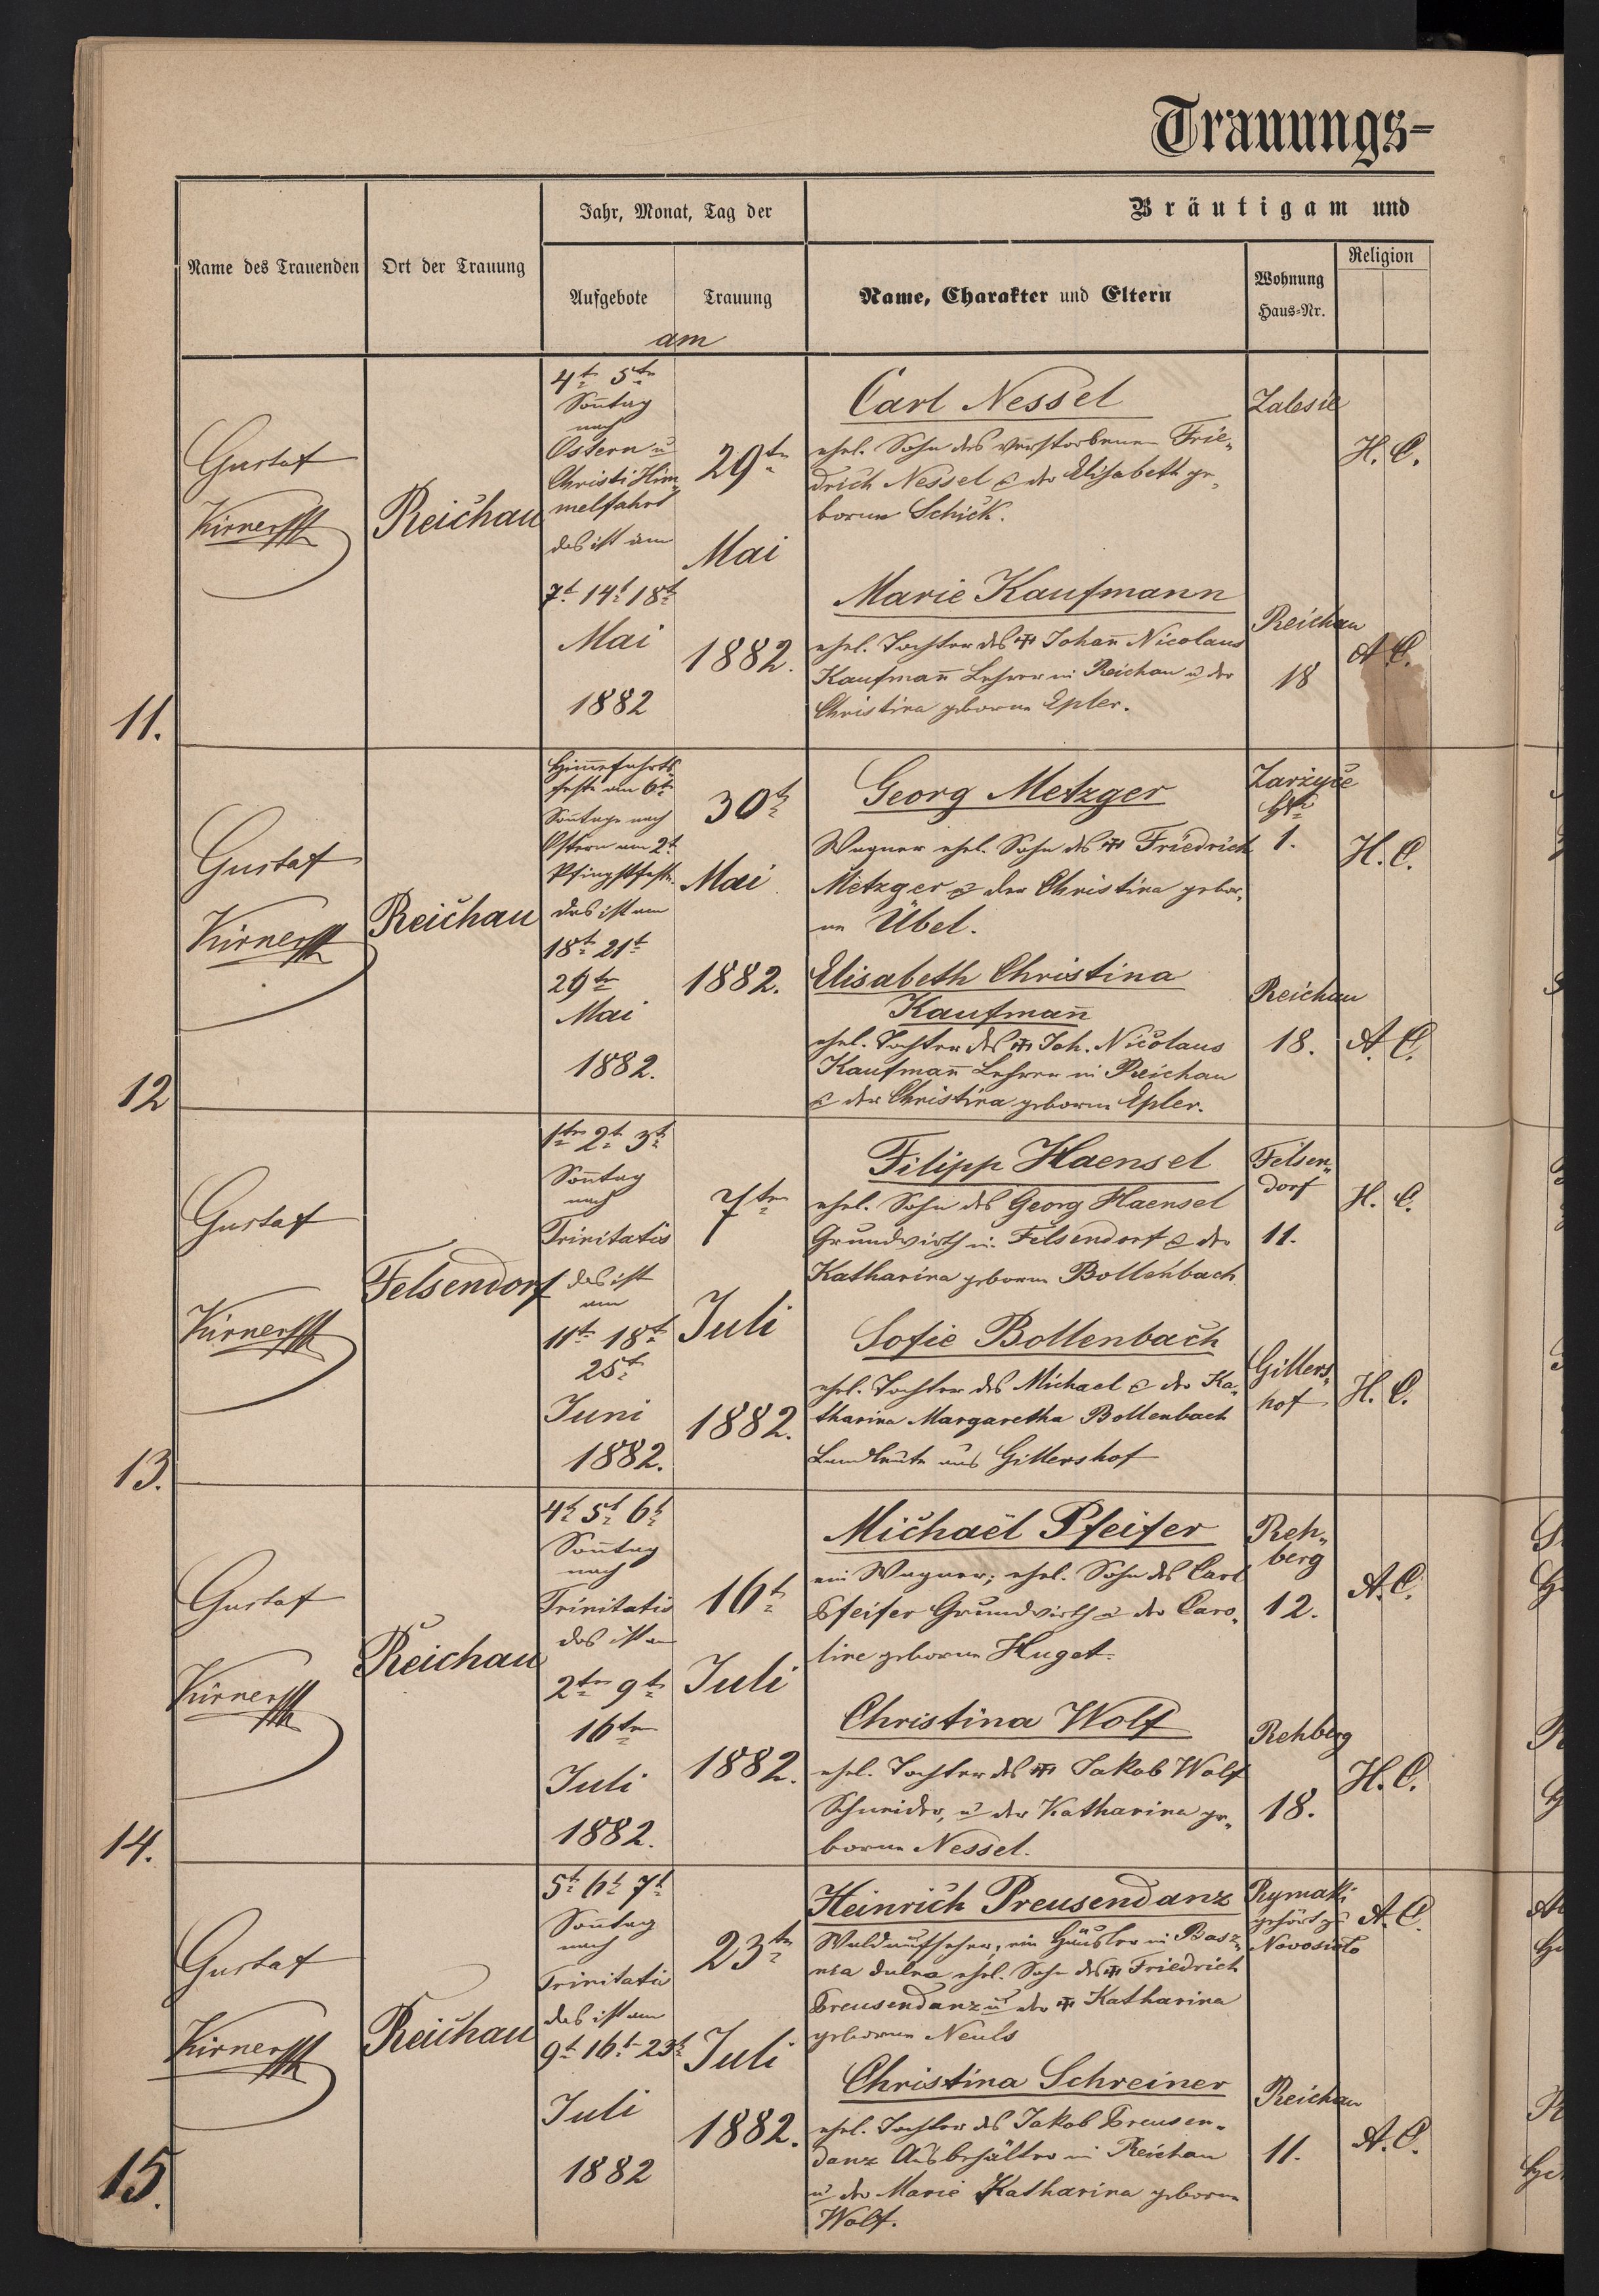 Trauungs-
Jahr, Monat, Tag der
Bräutigam und
Name des Trauenden
Ort der Trauung
Aufgebote
Trauung
am
Name, Charakter und Eltern
Wohnung
Haus-Nr.
Religion
11.
Gustaf
Kirner
Reichau
4t 5te
Soñtag
nach
Ostern u
Christi Him-
melfahrt
das ist am
7t 14t 18t
Mai
1882
29te
Mai
1882.
Carl Nessel
ehel. Sohn des verstorbenen Frie-
drich Nessel & der Elisabeth ge-
borene Schick.
Zalesie
H. C.
Marie Kaufmann
ehel. Tochter des Johañ Nicolaus
Kaufmañ Lehrer in Reichau u der
Christina geborene Epler.
Reichau
18
A. C.
12
Gustaf
Kirner
Reichau
Him̄efahrts-
feste am 6te
Soñtage nach
Ostern am 2t
Pfingstfeste
das ist am
18t 21t
29te
Mai
1882.
30t
Mai
1882.
Georg Metzger
Wagner ehel. Sohn des Friedrich
Metzger & der Christina gebor-
ne Übel.
1.
H. C.
Elisabeth Christina
Kaufmañ
ehel. Tochter des Joh. Nicolaus
Kaufmañ Lehrer in Reichau
& der Christina geborne Epler.
Reichau
18.
A. C.
13.
Gustaf
Kirner
Felsendorf
1te 2t 3t
Soñtag
nach
Trinitatis
das ist
am
11te 18t
25t
Juni
1882.
7te
Juli
1882.
Filipp Haensel
ehel. Sohn des Georg Haensel
Grundwirth in Felsendorf & der
Katharina geborne Bollenbach
Felsen-
dorf
11.
H. C.
Sofie Bollenbach
ehel. Tochter des Michael & der Ka-
tharina Margaretha Bollenbach
Landleute aus Gillershof
Gillers-
hof
H. C.
14.
Gustaf
Kirner
Reichau
4t 5t 6t
Soñtag
nach
Trinitatis
das ist am
2te 9t
16te
Juli
1882.
16t
Juli
1882.
Michael Pfeifer
ein Wagner; ehel. Sohn des Carl
Pfeifer Grundwirth & der Caro-
line geborene Huget.
Reh-
berg
12.
A. C.
Christina Wolf
ehel. Tochter des Jakob Wolf
Schneider, u der Katharina ge-
borene Nessel.
Rehberg
18.
H. C.
15.
Gustaf
Kirner
Reichau
5t 6t 7t
Soñtag
nach
Trinitatis
das ist am
9t 16t 23t
Juli
1882
23te
Juli
1882.
Heinrich Preusendanz
Waldaufseher, ein Häusler in Basz-
nia dulna ehel. Sohn des Friedrich
Preusendanz u der Katharina
geborene Neuls
Rymaki
gehört zu
Novosiolo
A. C.
Christina Schreiner
ehel. Tochter des Jakob Preusen-
danz Ausbehälter in Reichau
u der Marie Katharina geborne
Wolf.
Reichau
11.
A. C.